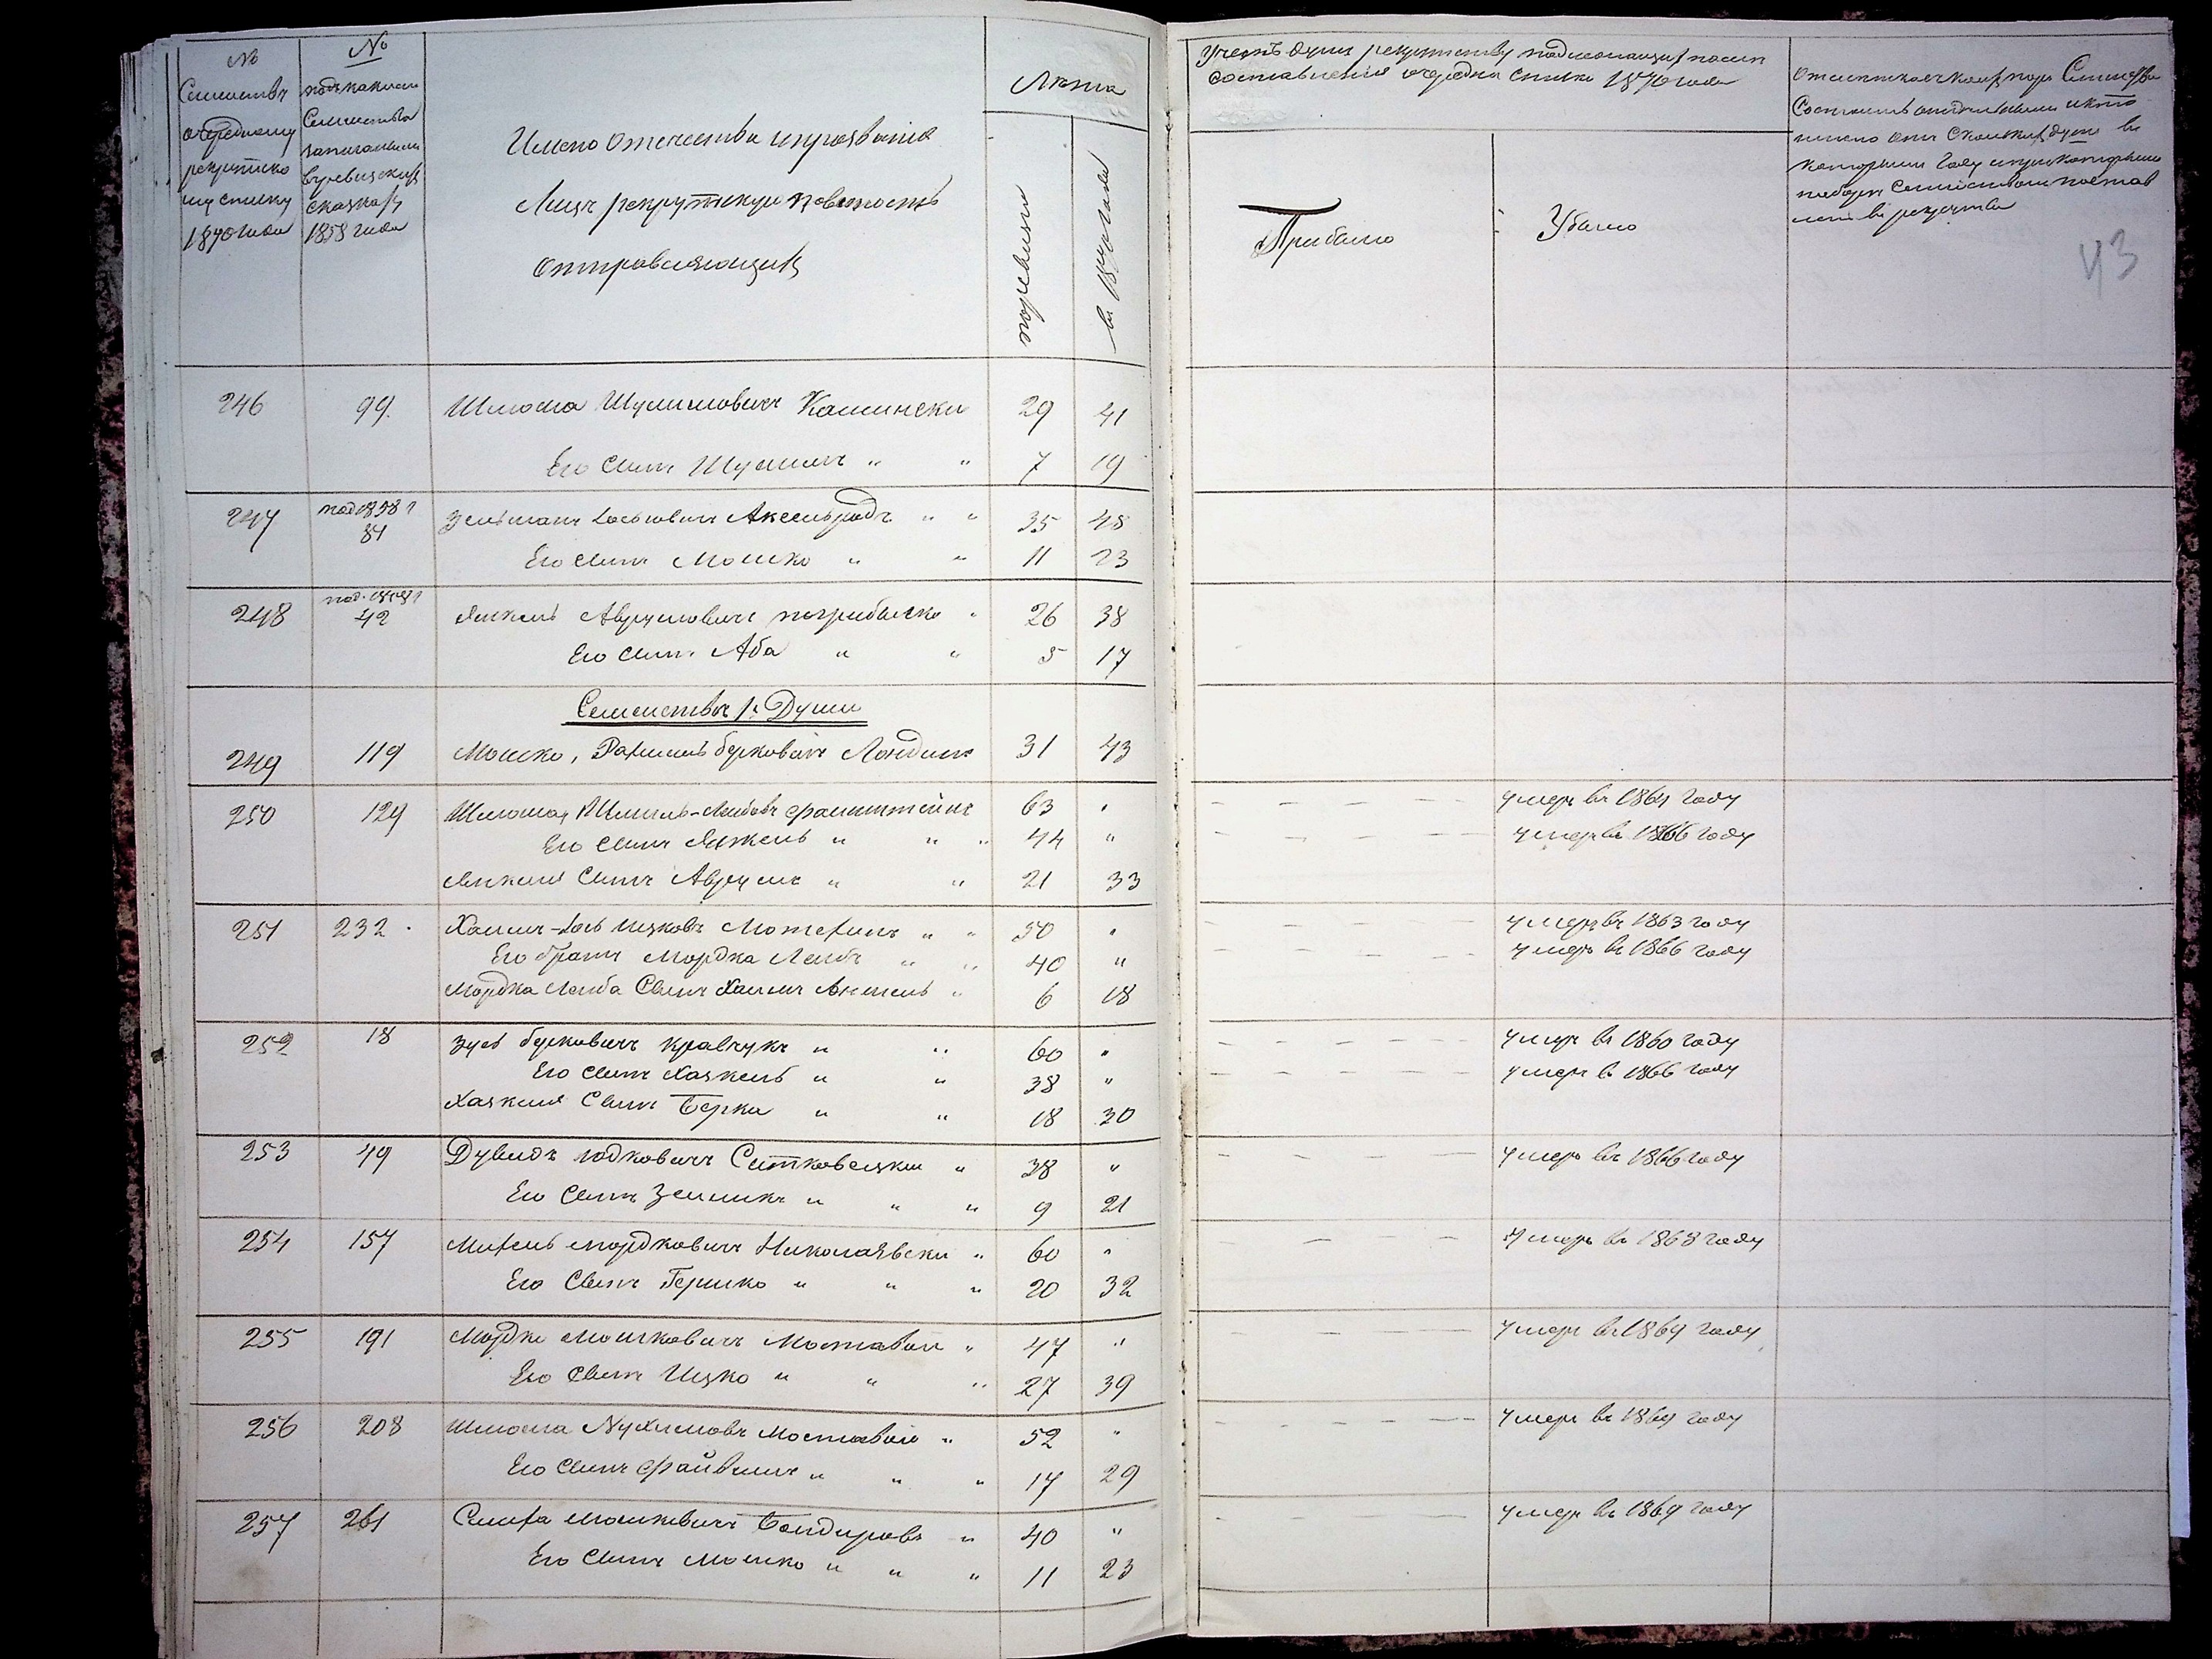 №
Семействъ
очередному
рекрутско
му списку
1870 года
№
подъ какими
Семейства
записаны
в ревизских
сказках
1858 года
Имено Отечества и прозвания
Лицъ рекрутскую повинность
Отправляющих
Лѣта
по ревизии
в 1870 году
Учетъ душъ рекрутству подлежащих после
составления очередна списка 1870 года
Прибыло
Убыло
43
246 99. Шлиома Шулимовичъ Камински 29 41
Его Сынъ Шулимъ " " 7 19
247 под 1858 г 84 Зельманъ Іосьовичъ Аксельродъ " " 35 48
Его Сынъ Мошко " " 11 23
248 под. 1858 г 42 Янкель Аврумовичъ погрибыско " 26 38
Его Сынъ Аба " " 5 17
Семейства 1. Души
249 119 Мошко, Рахмиль берковичъ Лондинъ 31 43
250 129 Шлиома, Шмиль-Лейбовъ файнштейнъ 63 " умеръ въ 1864 году
Его Сынъ Янкель " " " 44 " умеръ въ 1866 году
Янкиля Сынъ Аврумъ " " 21 33
251 232. Хаимъ-Іось Ицковъ Мотехинъ " " 50 " умеръ въ 1863 году
Его братъ Мордка Лейбъ " " 40 " умеръ въ 1866 году
Мордка Лейба Сынъ Хаимъ Аншель " 6 18
252 18 Зусь берковичъ кравчукъ " " 60 " умеръ въ 1860 году
Его Сынъ Хаскель " " 38 " умеръ в 1866 году
Хаскиля Сынъ Берка " " 18 30
253 49 Дувидъ Юдковичъ Ситковецки " 38 " умеръ въ 1866 году
Его Сынъ Зейликъ " " " 9 21
254 157 Михель мордковичъ Николаявски " 60 " умеръ въ 1868 году
Его Сынъ Гершко " " " 20 32
255 191 Мордко Мошковичъ Мостовои " 47 " умеръ въ 1869 году
Его Сынъ Ицко " " " 27 39
256 208 Шлиома Нухимовъ Мостовои " 52 " умеръ въ 1869 году
Его Сынъ файвишъ " " " 17 29
257 261 Симха мошковичъ Бондировъ " 40 " умеръ въ 1869 году
Его Сынъ Мошко " " " 11 23